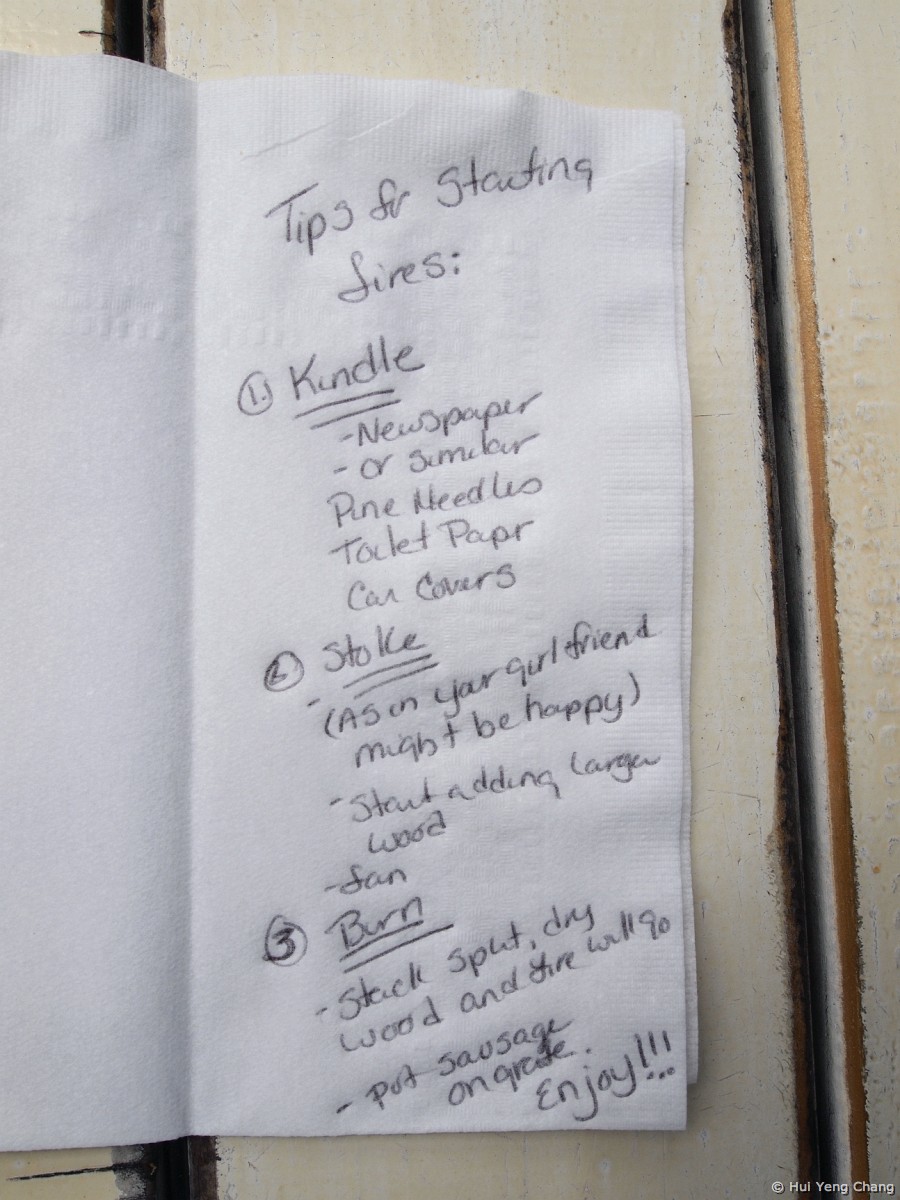 Tips for Starting
fires:
1. Kindle
- Newspaper
- or similar
Pine Needles
Toilet Papr
Car Covers
2 Stoke
- (As in your girlfriend
might be happy)
- Start adding larger
wood
- fan
3 Burn
- Stack split, dry
wood and fire will go
- put sausage
on grate.
Enjoy!!!
© Hui Yeng Chang